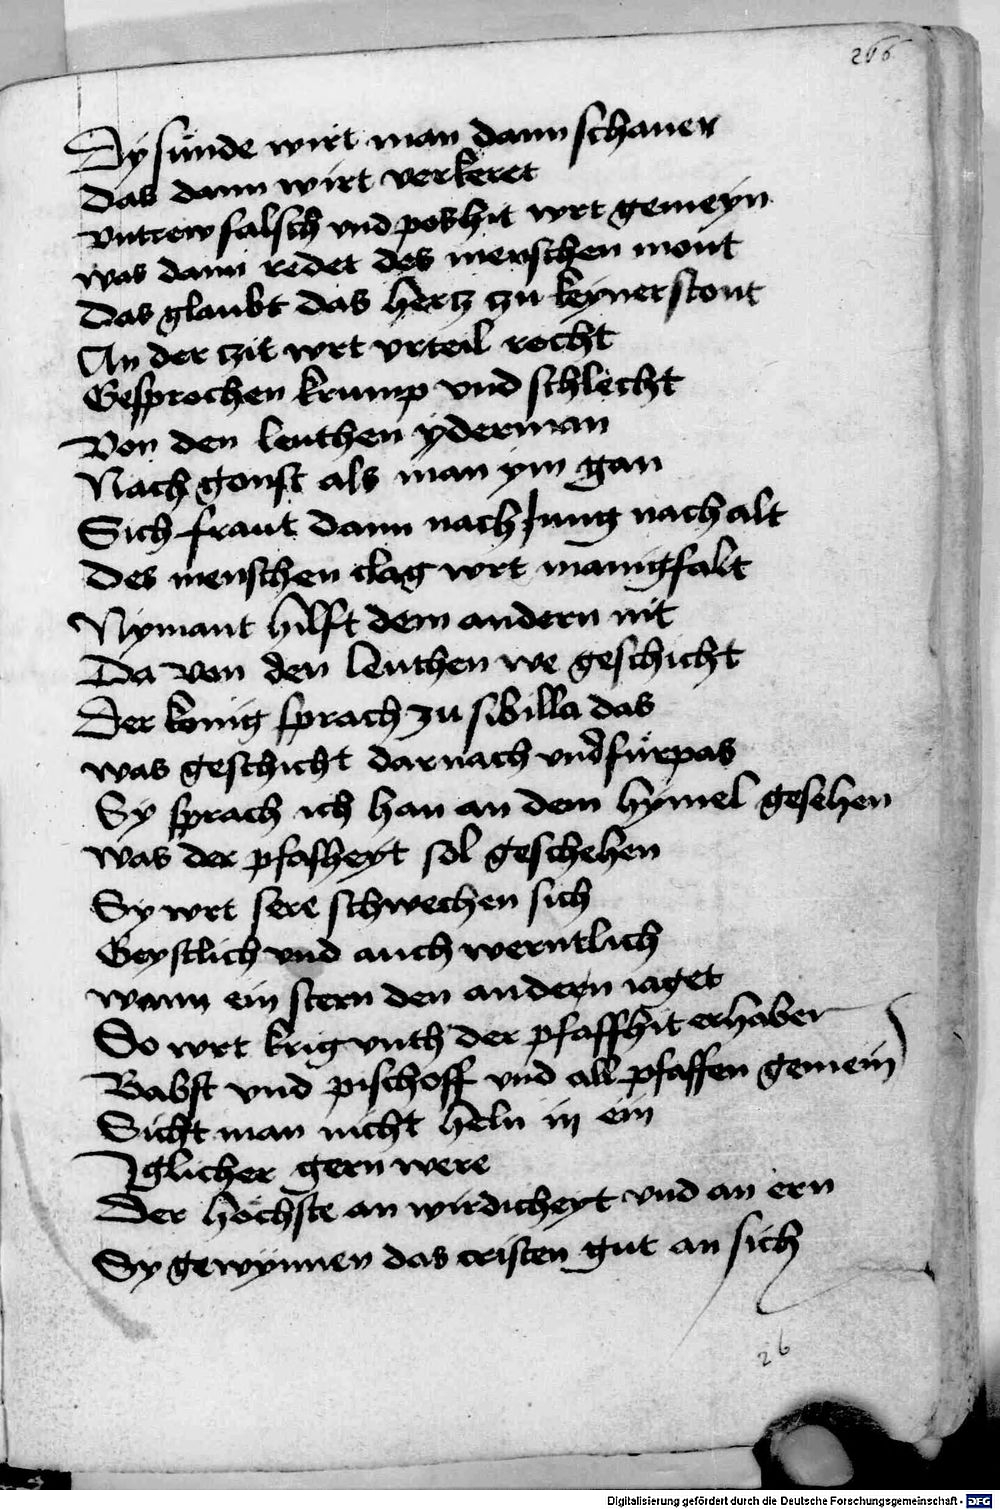 266
Dy sünde wirt man dann schauen
Das dann wirt verkeret
Vntrew falsch vnd poshit wrt gemeyn
was dann redet des menschen mont
Das glaubt das hertz zu keyner stont
An der tzit wrt vrteil recht
Gesprochen krump vnd schlecht
Von den leuthen yderman
Nach gonst als man ym gan
Sich fraut dann nach Jung nach alt
Des menschen clag wrt manigfalt
Nymant hilft dem andern nit
Da von den leuthen we geschicht
Der konig sprach zu sibilla das
was geschicht darnach vnd fürpas
Sy sprach ich han an dem hymel gesehen
was der pfafheyt sol geschehen
Sy wrt sere schwechen sich
Geystlich vnd auch werntlich
wann ein stern den andern iaget
So wrt krig vnth der pfaffhit erhaben
Babst vnd pischoff vnd all pfaffen gemein
Sicht man nicht heln in ein
Iglicher gern were
Der höchste an wirdicheyt vnd an ern
Sy gewynnen das cristen gut an sich
26
Digitalisierung gefördert durch die Deutsche Forschungsgemeinschaft - DFG